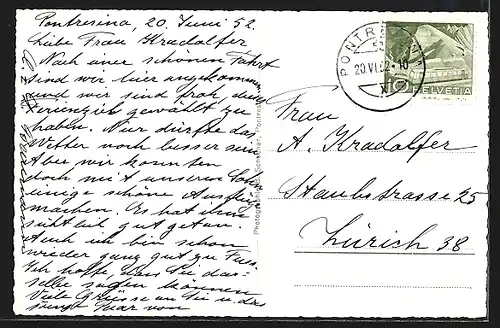 Pontresina, 20. Juni 52.
Liebe Frau Kradolfer
Nach einer schönen Fahrt
sind wir hier angekommen
und wir sind froh, dieses
Ferienziel gewählt zu
haben. Nur dürfte das
Wetter noch besser sein.
Aber wir konnten
doch mit unserem Sohn
einige schöne Ausflüge
machen. Es hat ihm
gut getan.
Auch ich bin schon
wieder ganz gut zu Fuss.
Ich hoffe, dass Sie das-
selbe sagen können
Viele Grüsse an Sie u. das
Paar von
PONTRESINA
20.VI.52-10
10
HELVETIA
Frau
A. Kradolfer
Staubstrasse 25
Zürich 38